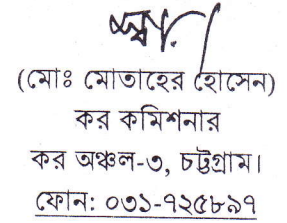 স্বা/
(মোঃ মোতাহের হোসেন)
কর কমিশনার
কর অঞ্চল-৩, চট্টগ্রাম।
ফোন: ০৩১-৭২৫৮৯৭